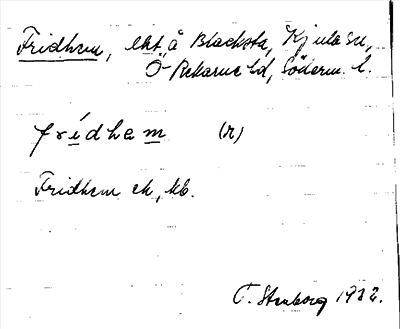 Fridhem, lht å Blacksta, Kjula sn,
Ö Rekarne hd, Söderm. l.
fridham (n)
Fridhem ek, kb.
T. Stenborg 1932.